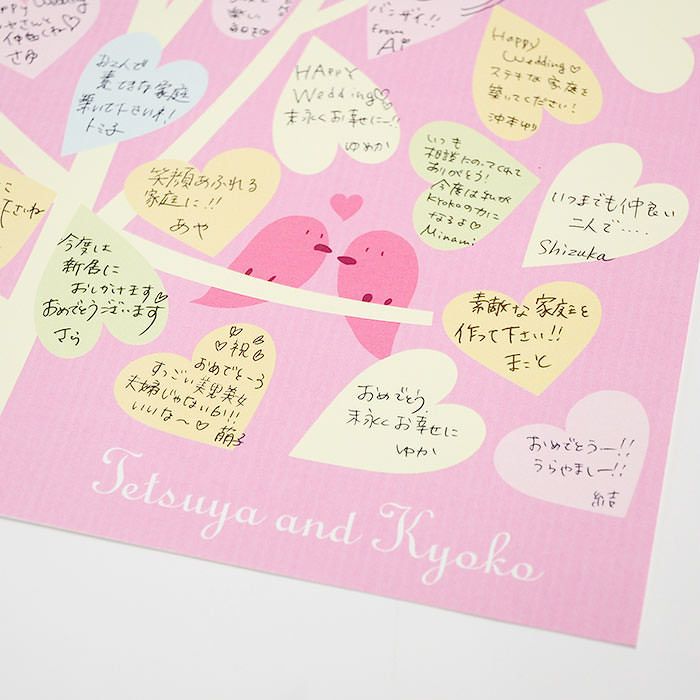 Happy Wedding
バンザイ!!
from
築いて下さいネ!
トミ子
HAppy
Wedding♡
末永くお幸せにー!!
ゆめか
Happy
Wedding♡
ステキな家庭を
築いてください!
いつも
相談にのってくれて
ありがとう!
今度は私が
Kyokoのかに
なるよ♡
Minami
笑顔あふれる
家庭に!!
あや
いつまでも仲良い
二人で.....
Shizuka
今度は
新居に
おしかけます♡
おめでとうございます
さら
素敵な家庭を
作って下さい!!
まこと
祝
おめでとーう
すっごい美男美女
夫婦じゃないか!!!
いいな〜♡
萌子
おめでとう。
末永くお幸せに
ゆか
おめでとうー!!
うらやましー!!
結
Tetsuya and Kyoko